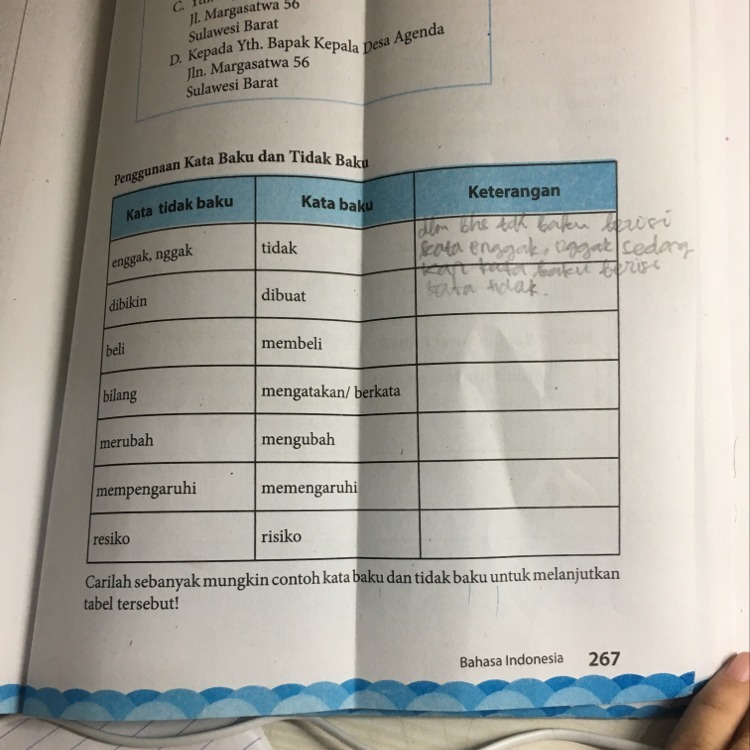 C.
Jl. Margasatwa 56
Sulawesi Barat
D. Kepada Yth. Bapak Kepala Desa Agenda
Jln. Margasatwa 56
Sulawesi Barat
Penggunaan Kata Baku dan Tidak Baku
Kata tidak baku Kata baku Keterangan
enggak, nggak tidak
dlm bhs tdk baku berisi
kata enggak, nggak sedang
kata baku berisi
kata tidak.
dibikin dibuat
beli membeli
bilang mengatakan/ berkata
merubah mengubah
mempengaruhi memengaruhi
resiko risiko
Carilah sebanyak mungkin contoh kata baku dan tidak baku untuk melanjutkan
tabel tersebut!
Bahasa Indonesia 267